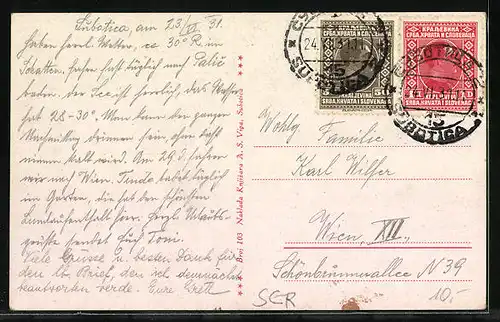 Subotica, am 23/VI. 31.
haben herrl. Wetter, ca 30° R. im
Schatten, fahren fast täglich nach Palić
baden. Der See ist herrlich, das Wasser
hat 28-30°. Man kann den ganzen
Nachmittag drinnen sein ohne daß
einem kalt wird. Am 29. fahren
wir nach Wien.
im Garten, die hat den schönsten
Landaufenthalt hier. Herzl. Urlaubs-
grüße sendet Euch Toni.
Viele Grüsse u. besten Dank für
den lb. Brief, den ich demnächst
beantworten werde. Eure Gretl
*** Broj 103 Naklada Knjižara A. S. Vige, Subotica ***
КРАЉЕВИНА
СРБА, ХРВАТА И СЛОВЕНАЦА
SRBA, HRVATA I SLOVENACA
КРАЉЕВИНА
СРБА, ХРВАТА И СЛОВЕНАЦА
SRBA, HRVATA I SLOVENACA
15
SUBOTICA
15
SUBOTICA
Wohlg. Familie
Karl Wilfer
Wien, XII.
Schönbrunnerallee N 39
SCR
10,-